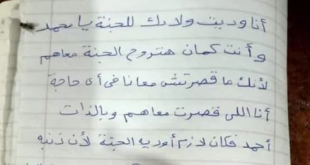 أنا وديت ولادك للجنة يا محمد
وأنت كمان هتروح الجنة معاهم
لأنك ما قصرتش معانا فى أى حاجة
أنا اللى قصرت معاهم وبالذات
أحمد فكان لازم أوديه الجنة لأن ذنبه